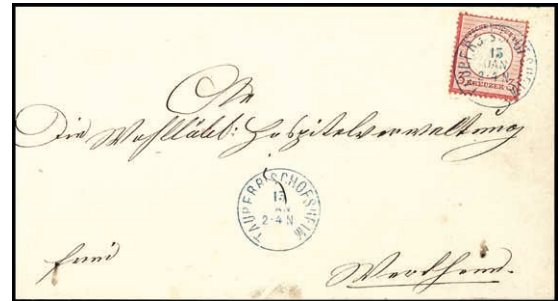 TAUBERBISCHOFSHEIM
15
JAN
2-4 N
3 KREUZER 3
An
Die Wohllöbl: Hospitalverwaltung
TAUBERBISCHOFSHEIM
15
JAN
2-4 N
frei
Wertheim.